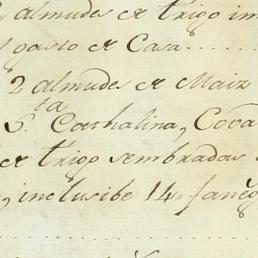 almudes de trigo im
gasto de Casa........
2 almudes de Maiz
S.ta Cathalina, Cova
de trigo sembradas
, inclusibe 14 faneg